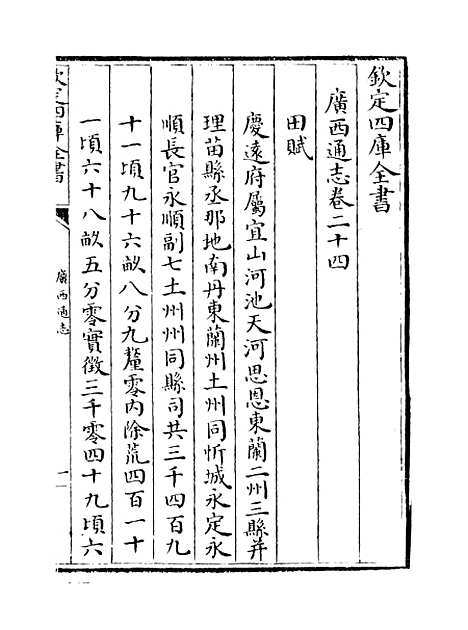 欽定四庫全書
廣西通志卷二十四
田賦
慶遠府屬宜山河池天河思恩東蘭二州三縣并
理苗縣丞那地南丹東蘭州土州同忻城永定永
順長官永順副七土州州同縣司共三千四百九
十一頃九十六畝八分九釐零內除荒四百一十
一頃六十八畝五分零實徵三千零四十九頃六
欽定四庫全書
廣西通志
一